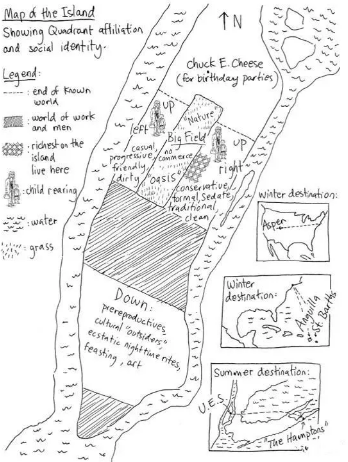 Map of the Island
Showing Quadrant affiliation
and social identity.
Legend:
end of known
world
world of work
and men
richest on the
island
live here
:child rearing
:water
:grass
N
Chuck E. Cheese
(for birthday parties)
"Nature"
up
left
Big Field
up
right
casual,
progressive
friendly
dirty
no
commerce
"Oasis"
conservative
formal, sedate
traditional
clean
Down:
prereproductives,
cultural "outsiders",
ecstatic nighttime rites,
feasting, art
Winter destination:
Aspen
Winter
destination:
Anguilla
St. Barths
Summer destination:
U.E.S.
"The Hamptons"